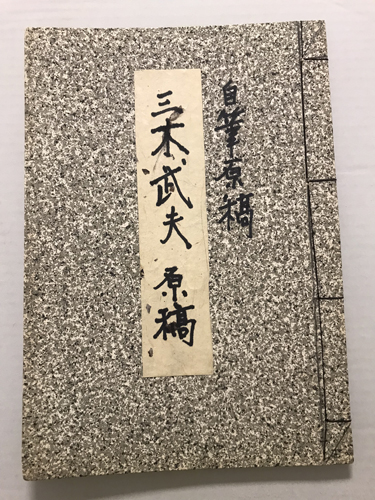 自筆原稿
三木武夫 原稿